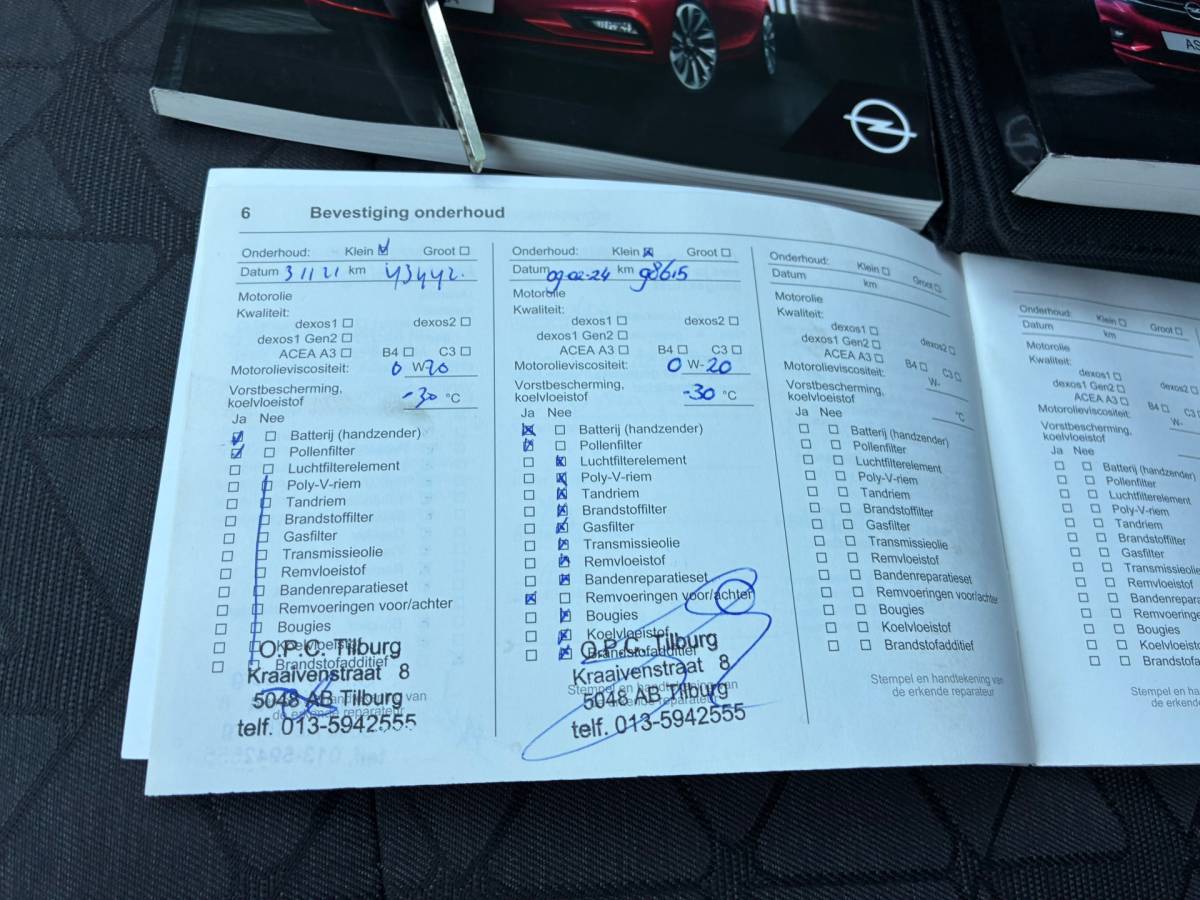 AS
6 Bevestiging onderhoud
Onderhoud: Klein Groot
Datum 3 11 21 km 43442.
Motorolie
Kwaliteit:
dexos1 dexos2
dexos1 Gen2
ACEA A3 B4 C3
Motorolieviscositeit: 0 W-20
Vorstbescherming,
koelvloeistof -30 °C
Ja Nee
Batterij (handzender)
Pollenfilter
Luchtfilterelement
Poly-V-riem
Tandriem
Brandstoffilter
Gasfilter
Transmissieolie
Remvloeistof
Bandenreparatieset
Remvoeringen voor/achter
Bougies
Koelvloeistof
Brandstofadditief
Stempel en handtekening van
de erkende reparateur
O.P.C. Tilburg
Kraaivenstraat 8
5048 AB Tilburg
telf. 013-5942555
Onderhoud: Klein Groot
Datum 09-02-24 km 98615
Motorolie
Kwaliteit:
dexos1 dexos2
dexos1 Gen2
ACEA A3 B4 C3
Motorolieviscositeit: 0 W-20
Vorstbescherming,
koelvloeistof -30 °C
Ja Nee
Batterij (handzender)
Pollenfilter
Luchtfilterelement
Poly-V-riem
Tandriem
Brandstoffilter
Gasfilter
Transmissieolie
Remvloeistof
Bandenreparatieset
Remvoeringen voor/achter
Bougies
Koelvloeistof
Brandstofadditief
Stempel en handtekening van
de erkende reparateur
O.P.C. Tilburg
Kraaivenstraat 8
5048 AB Tilburg
telf. 013-5942555
Onderhoud: Klein Groot
Datum km
Motorolie
Kwaliteit:
dexos1 dexos2
dexos1 Gen2
ACEA A3 B4 C3
Motorolieviscositeit: W-
Vorstbescherming,
koelvloeistof °C
Ja Nee
Batterij (handzender)
Pollenfilter
Luchtfilterelement
Poly-V-riem
Tandriem
Brandstoffilter
Gasfilter
Transmissieolie
Remvloeistof
Bandenreparatieset
Remvoeringen voor/achter
Bougies
Koelvloeistof
Brandstofadditief
Stempel en handtekening van
de erkende reparateur
Onderhoud: Klein Groot
Datum km
Motorolie
Kwaliteit:
dexos1 dexos2
dexos1 Gen2
ACEA A3 B4 C3
Motorolieviscositeit: W-
Vorstbescherming,
koelvloeistof
Ja Nee
Batterij (handzender)
Pollenfilter
Luchtfilterelement
Poly-V-riem
Tandriem
Brandstoffilter
Gasfilter
Transmissieolie
Remvloeistof
Bandenrepara
Remvoeringe
Bougies
Koelvloeisto
Brandstofa
Stempel en hand
de erkend